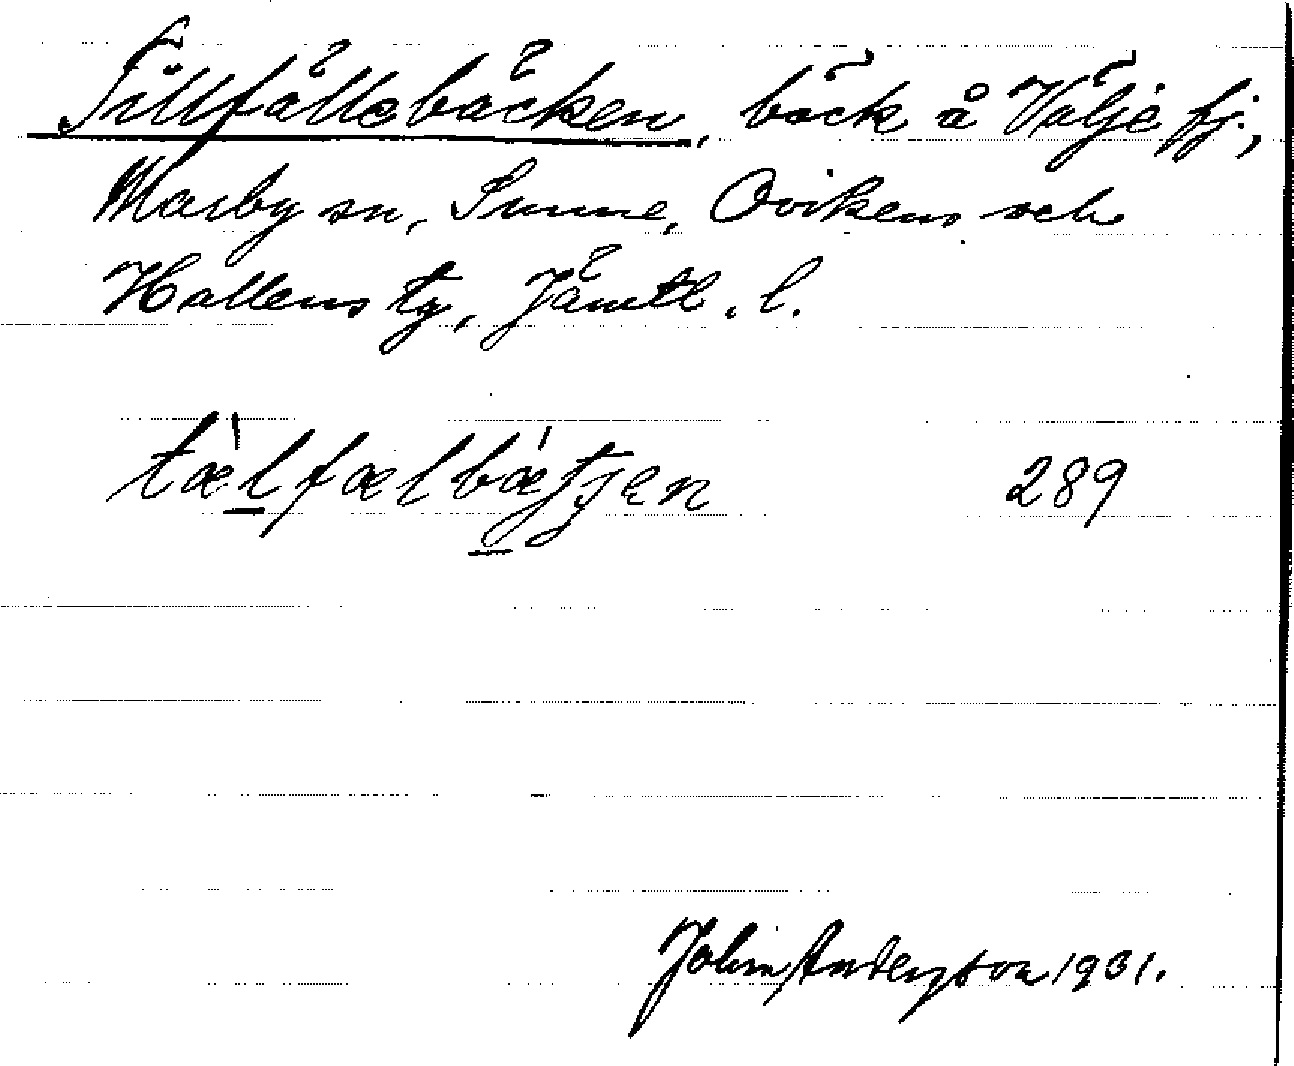 Tillfällebäcken, bäck å Välje fj.,
Marby sn, Sunne, Ovikens och
Hallens tg, Jämtl. l.
tæ̀lfælbǽtjen 289
John Anderson 1931.